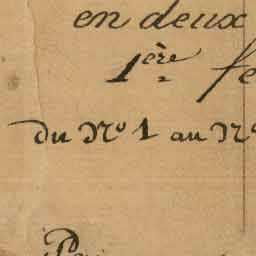 en deux
1ère fe
du No 1 au No